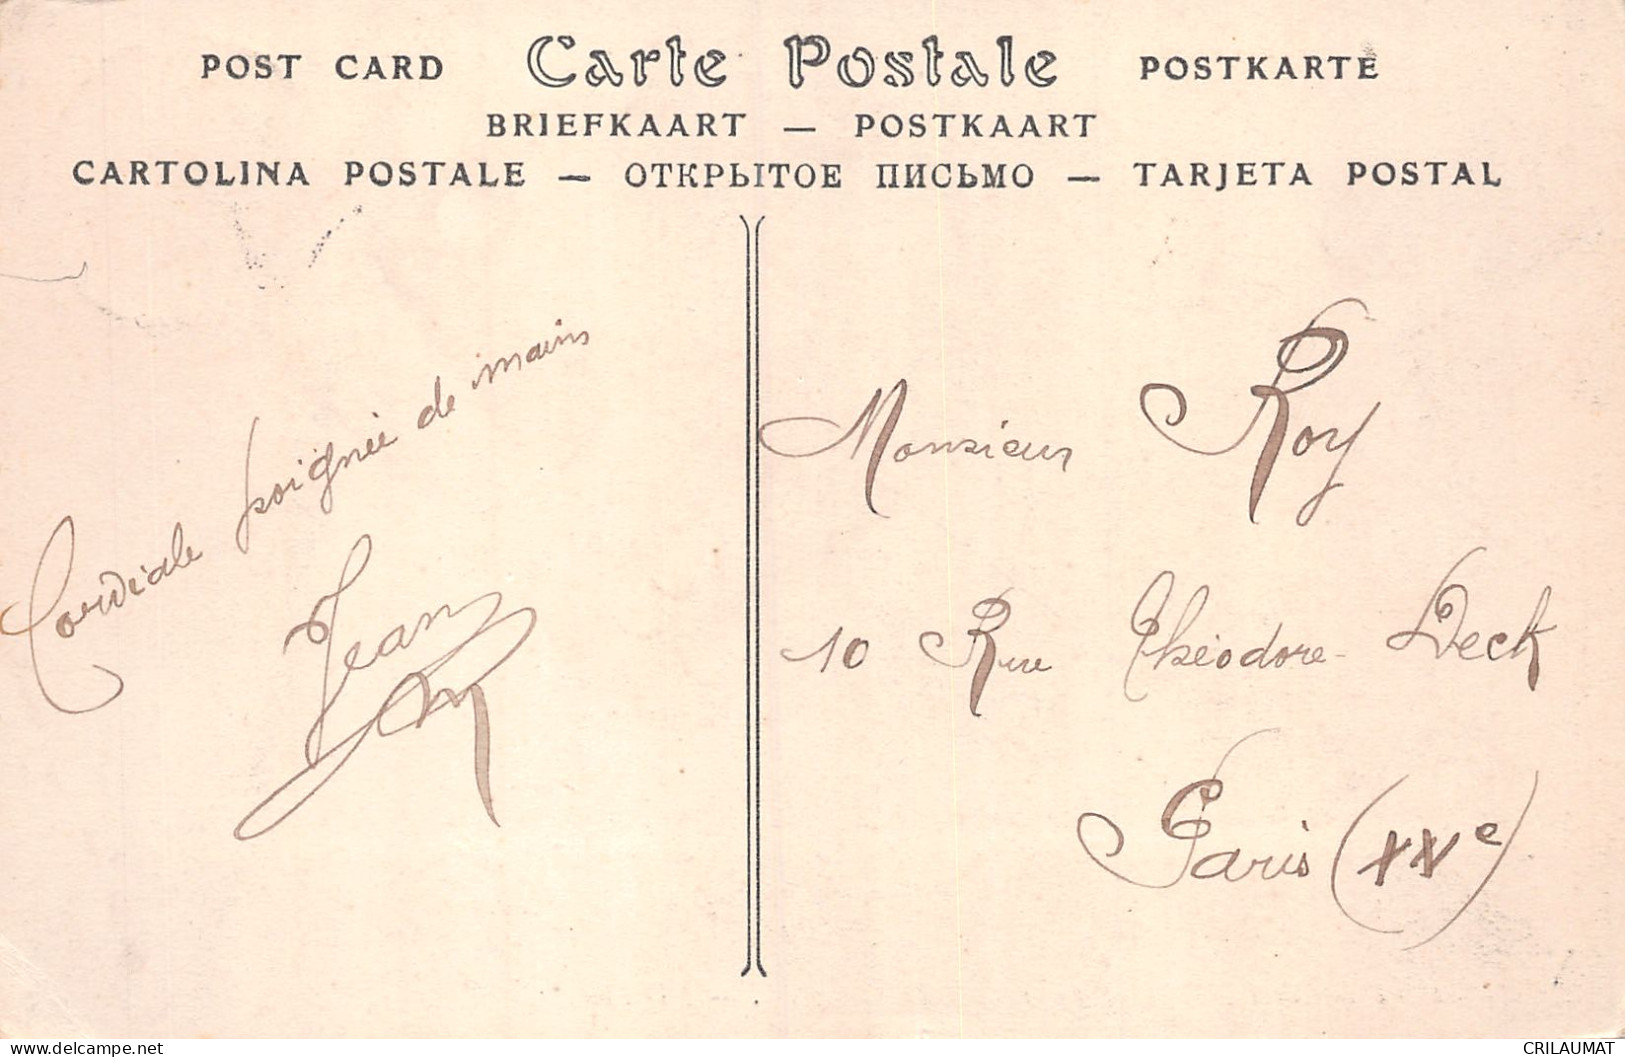 POST CARD Carte Postale POSTKARTE
BRIEFKAART — POSTKAART
CARTOLINA POSTALE — ОТКРЫТОЕ ПИСЬМО — TARJETA POSTAL
Cordiale poignée de mains
Jean
Monsieur Roy
10 Rue Théodore-Deck
Paris (XVe)
CRILAUMAT